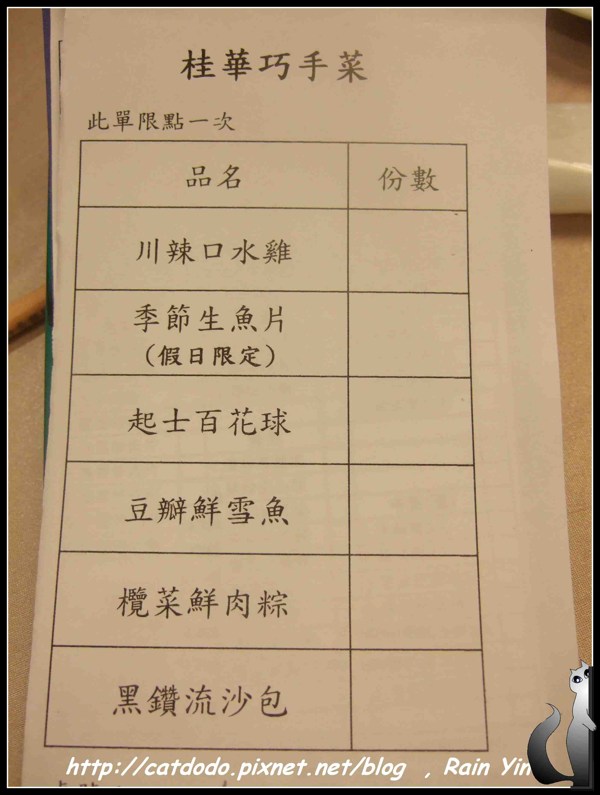 桂華巧手菜
此單限點一次
品名 份數
川辣口水雞
季節生魚片
(假日限定)
起士百花球
豆瓣鮮雪魚
欖菜鮮肉粽
黑鑽流沙包
http://catdodo.pixnet.net/blog , Rain Yin